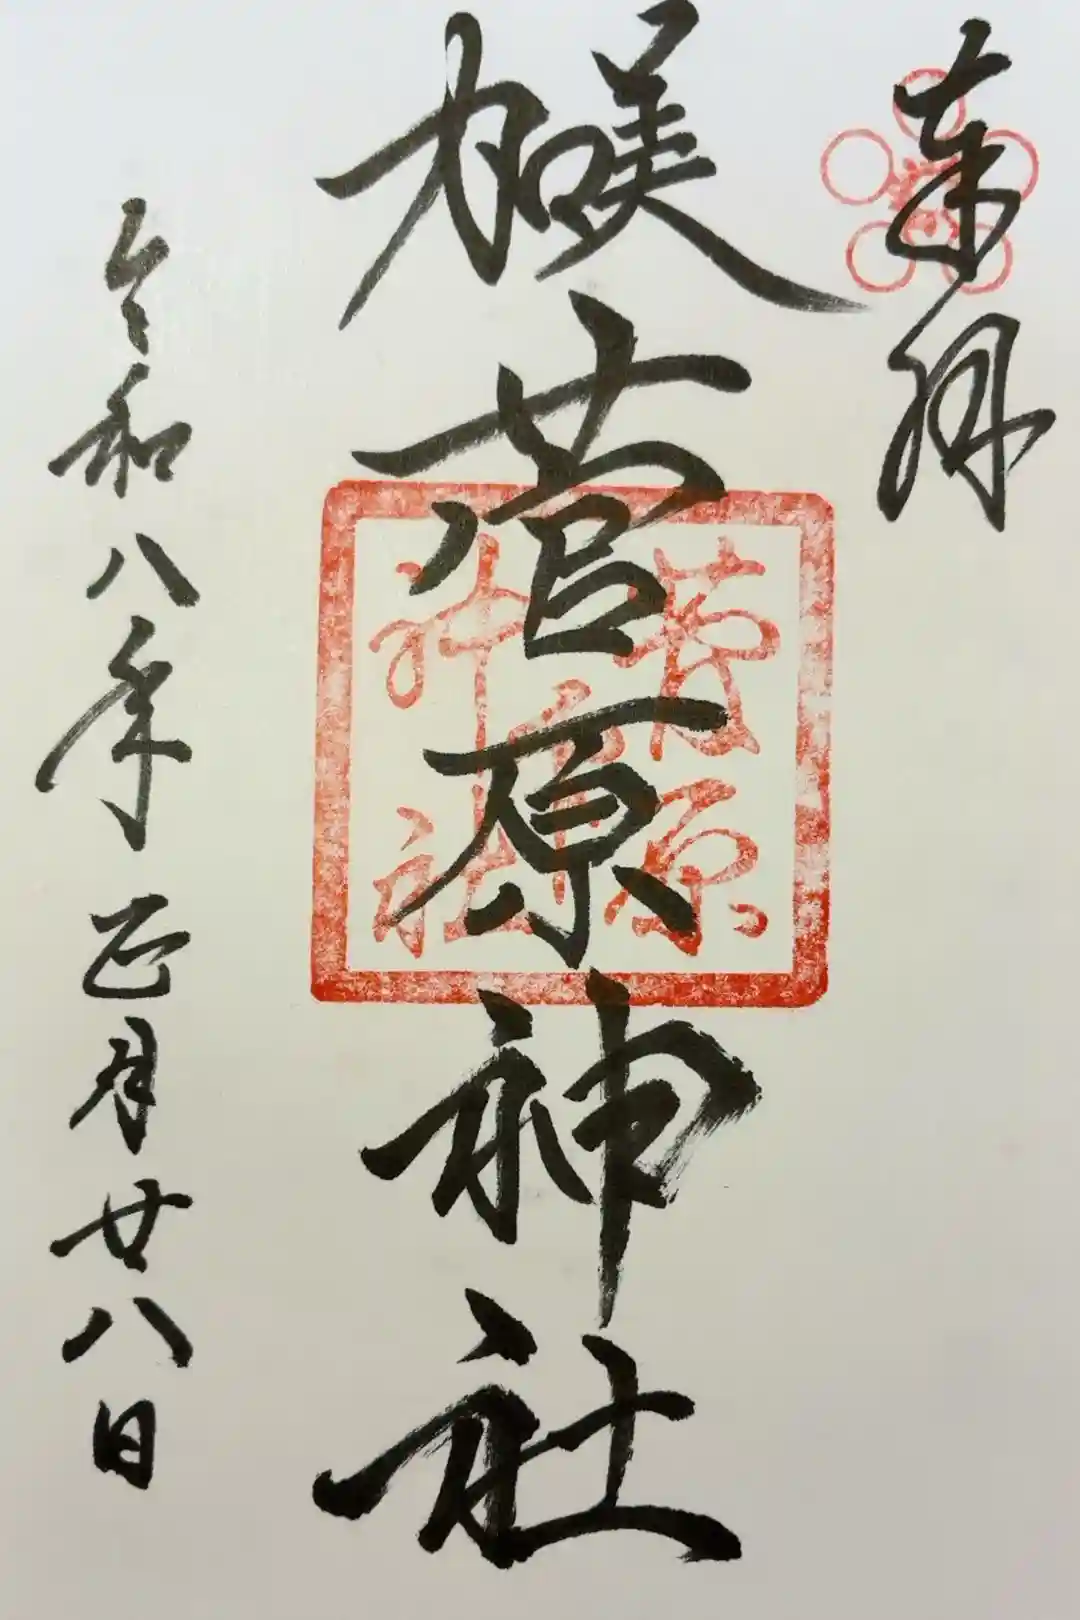 奉拝
加美
菅原神社
菅原
神社
令和八年正月廿八日